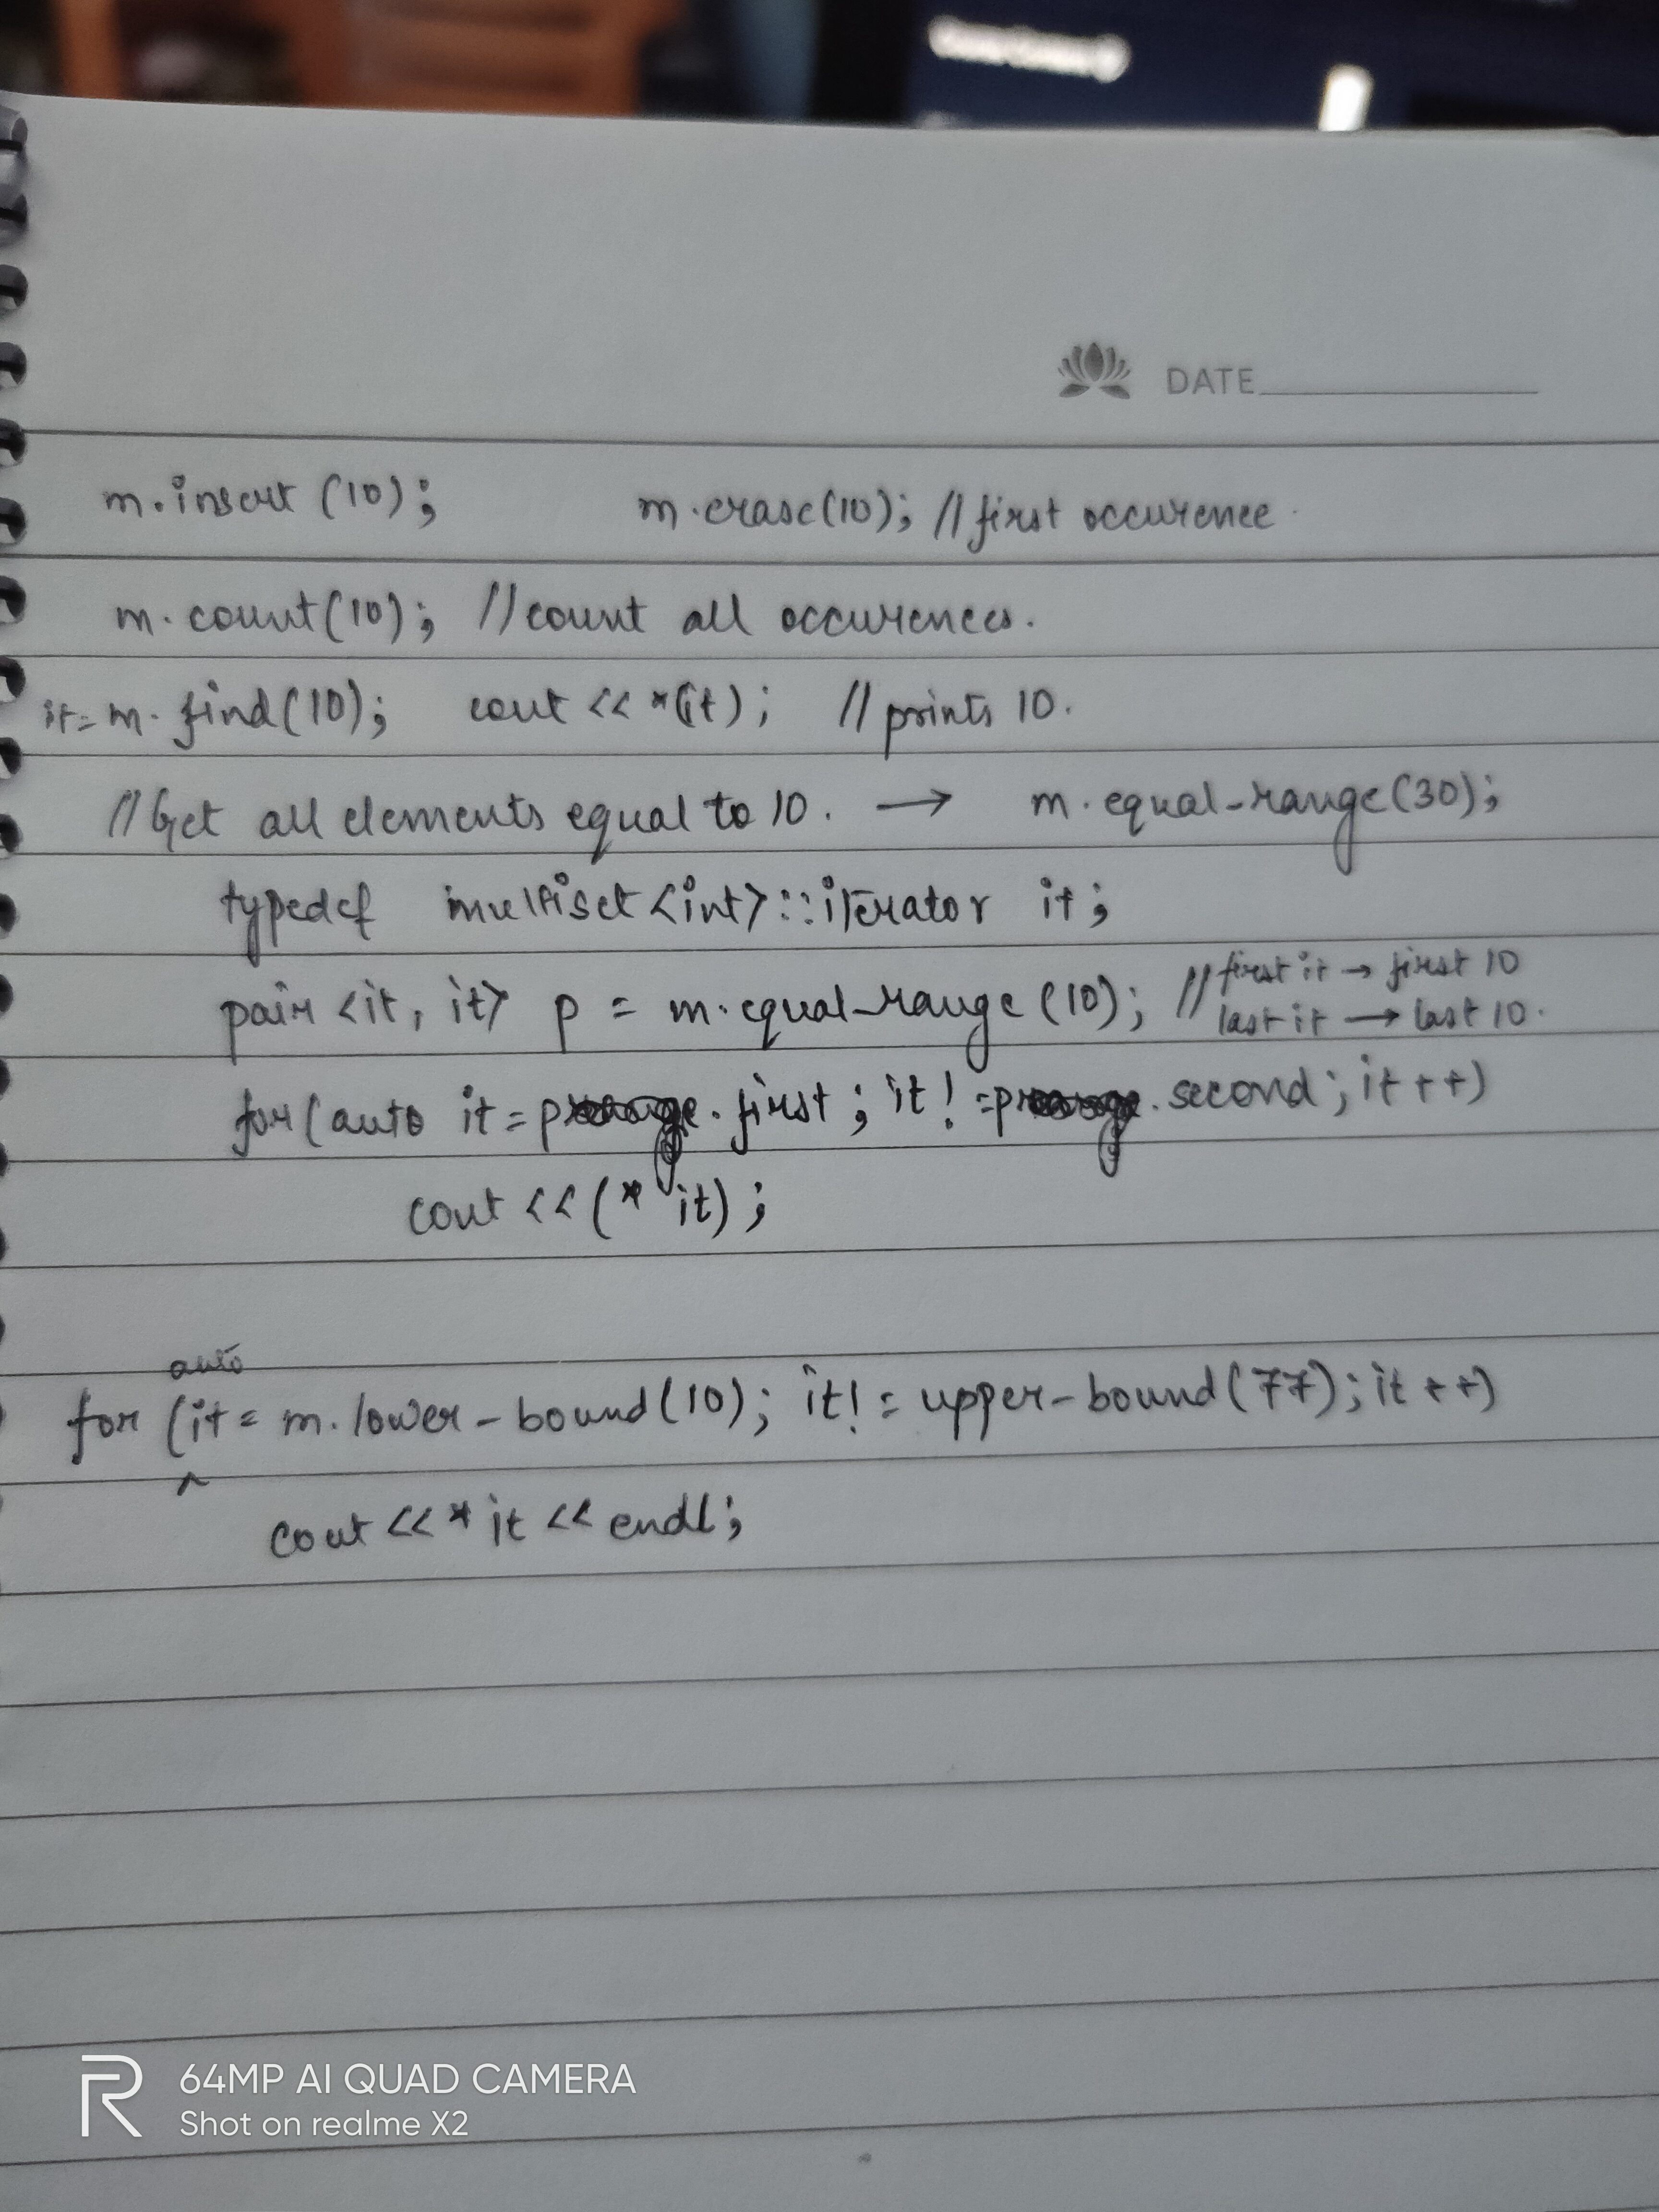 DATE
m.insert (10); m.erase(10); // first occurence.
m.count(10); // count all occurences.
it= m.find(10); cout << *(it); // prints 10.
// Get all elements equal to 10. → m.equal_range(30);
typedef multiset <int>::iterator it;
pair <it, it> p = m.equal_range (10); // first it → first 10
last it → last 10.
for (auto it = p.first ; it != p.second ; it++)
cout << (* it) ;
auto
for (it = m.lower_bound(10); it != upper_bound(77); it++)
cout << * it << endl;
64MP AI QUAD CAMERA
Shot on realme X2